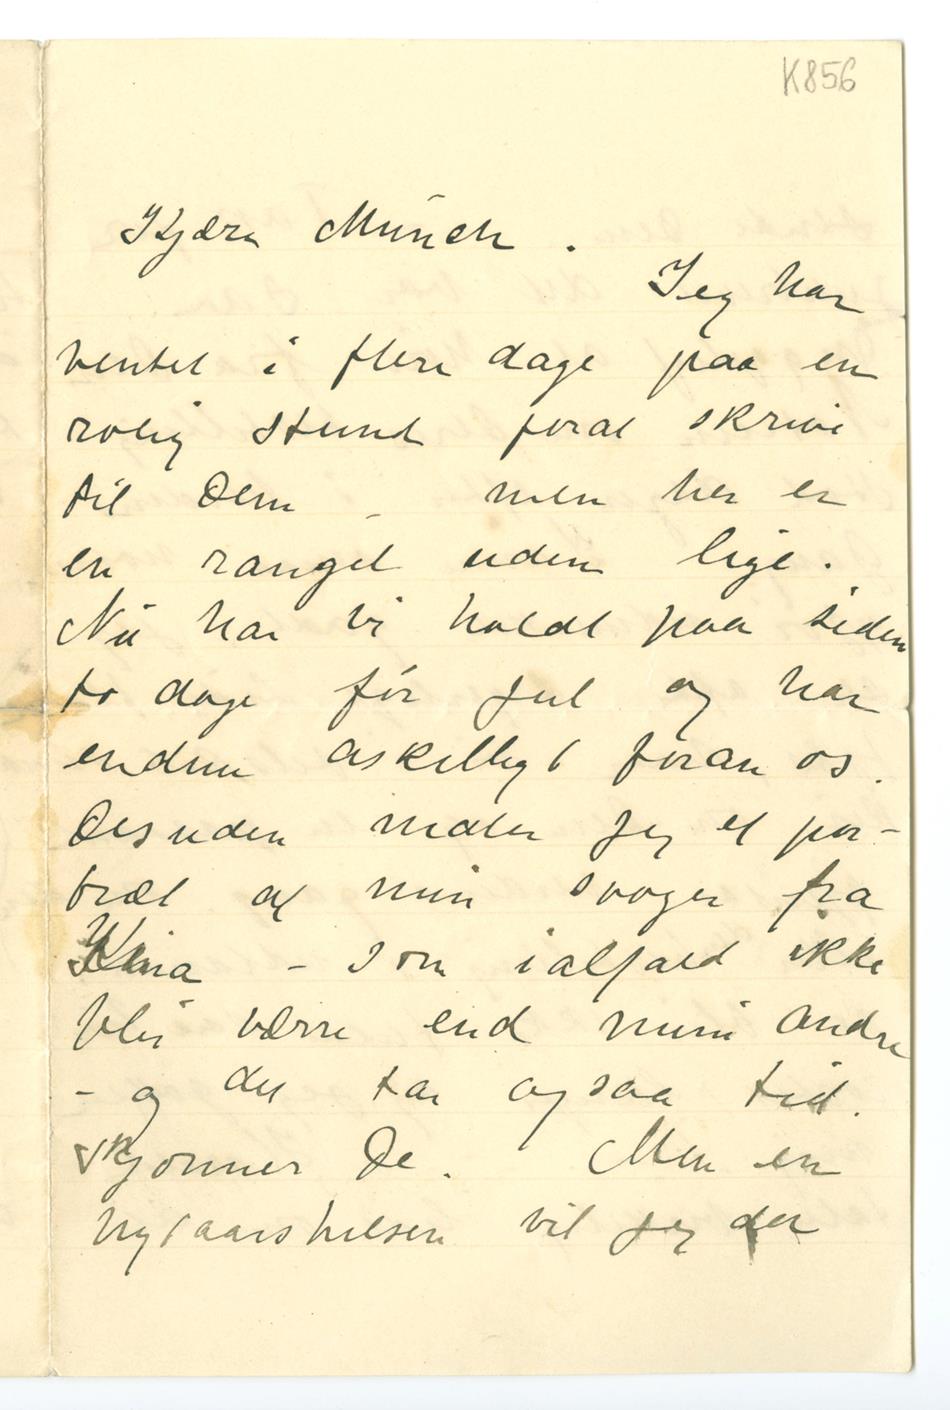 K856
Kjære Münch.
Jeg har
ventet i flere dage paa en
rolig stund forat skrive
til Dem – men her er
en rangel uden lige.
Nu har vi holdt paa siden
to dage før jul og har
endnu askelligt foran os.
Desuden maler jeg et por-
træt af min svoger fra
Kina – som ialfald ikke
blir værre end mine andre
– og det tar ogsaa tid.
skjønner De. Men en
nytaarshilsen vil jeg da